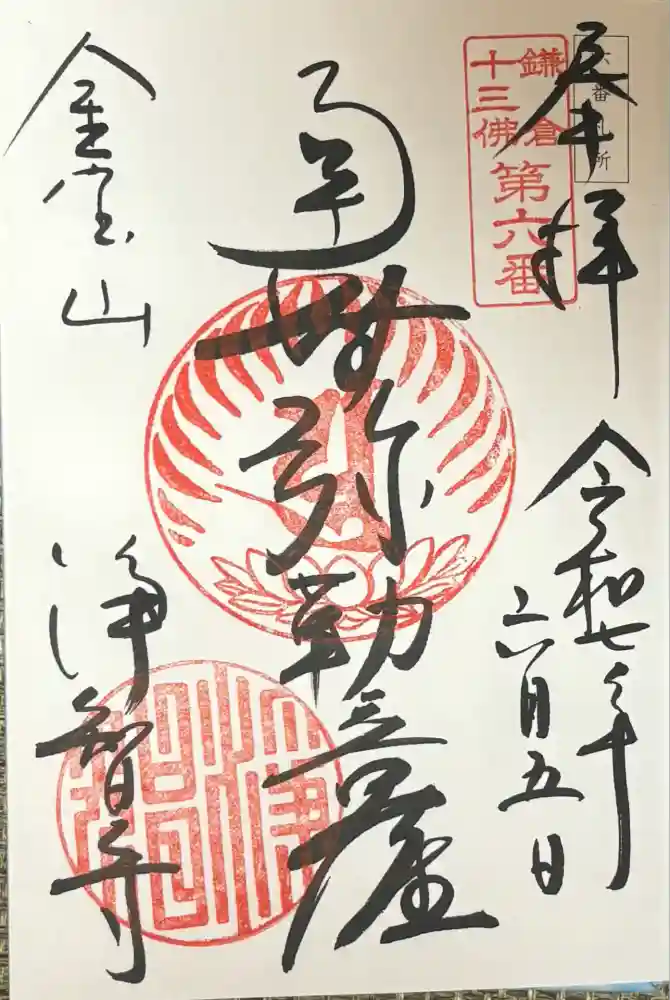 六番札所
奉拝
令和七年
六月五日
鎌倉
十三佛
第六番
南無弥勒菩薩
金宝山
浄智寺